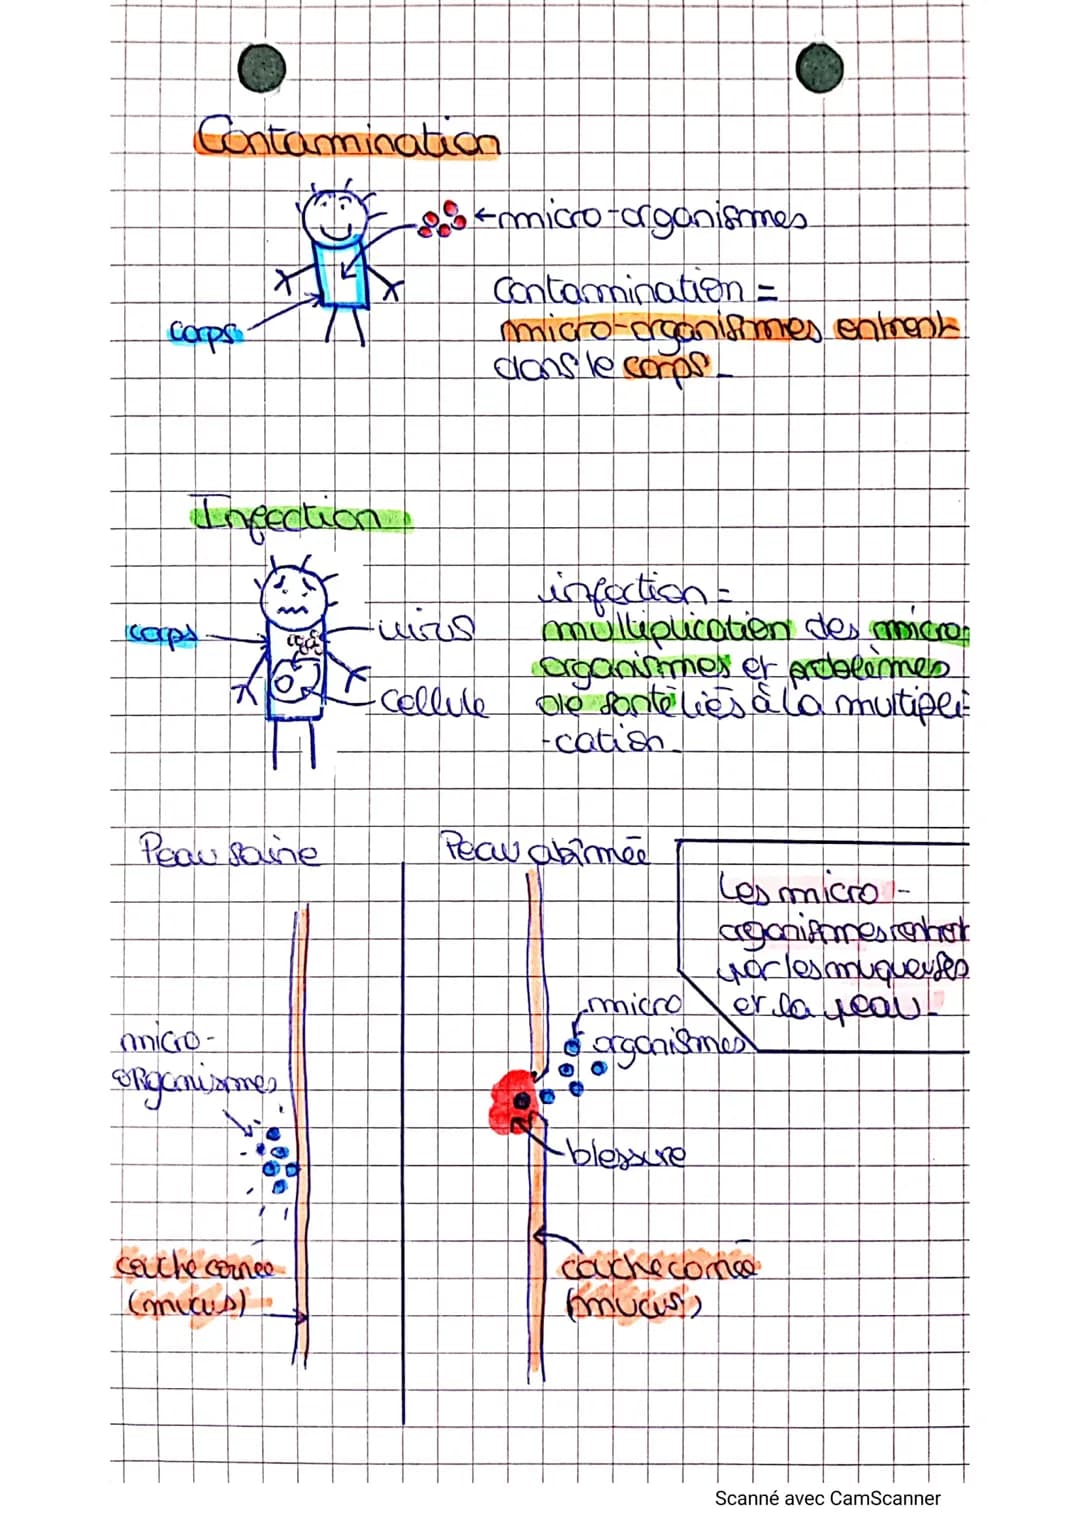 Contamination
←micro-organismes
Contamination =
micro-organismes entrent
dans le corps.
corps
Infection
infection =
multiplication des micro-
organismes et problèmes
de santé liés à la multipli-
-cation.
corps
virus
cellule
Peau saine
Peau abîmée
Les micro-
organismes rentrent
par les muqueuses
et la peau.
micro-
organismes
micro
organismes
blessure
couche cornée
(mucus)
couche cornée
(mucus)
Scanné avec CamScanner